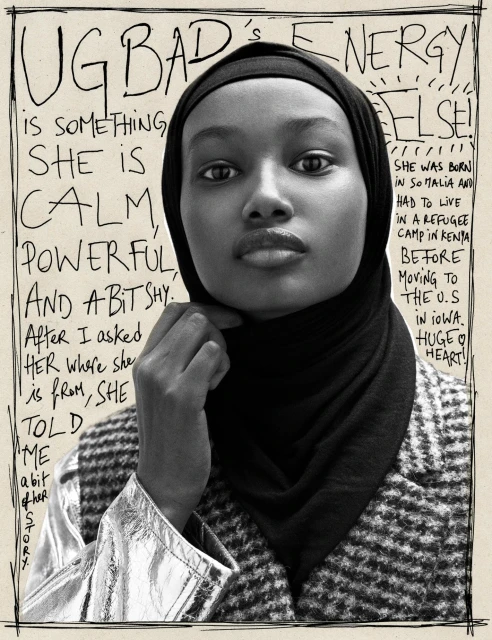 UGBAD's ENERGY
IS SOMETHING
ELSE!
SHE IS
CALM,
POWERFUL,
AND A BIT SHY.
After I asked
HER where she
is from, SHE
TOLD
ME
a bit
of her
STORY.
SHE WAS BORN
IN SOMALIA AND
HAD TO LIVE
IN A REFUGEE
CAMP IN KENYA
BEFORE
MOVING TO
THE U.S
IN IOWA.
HUGE
HEART!